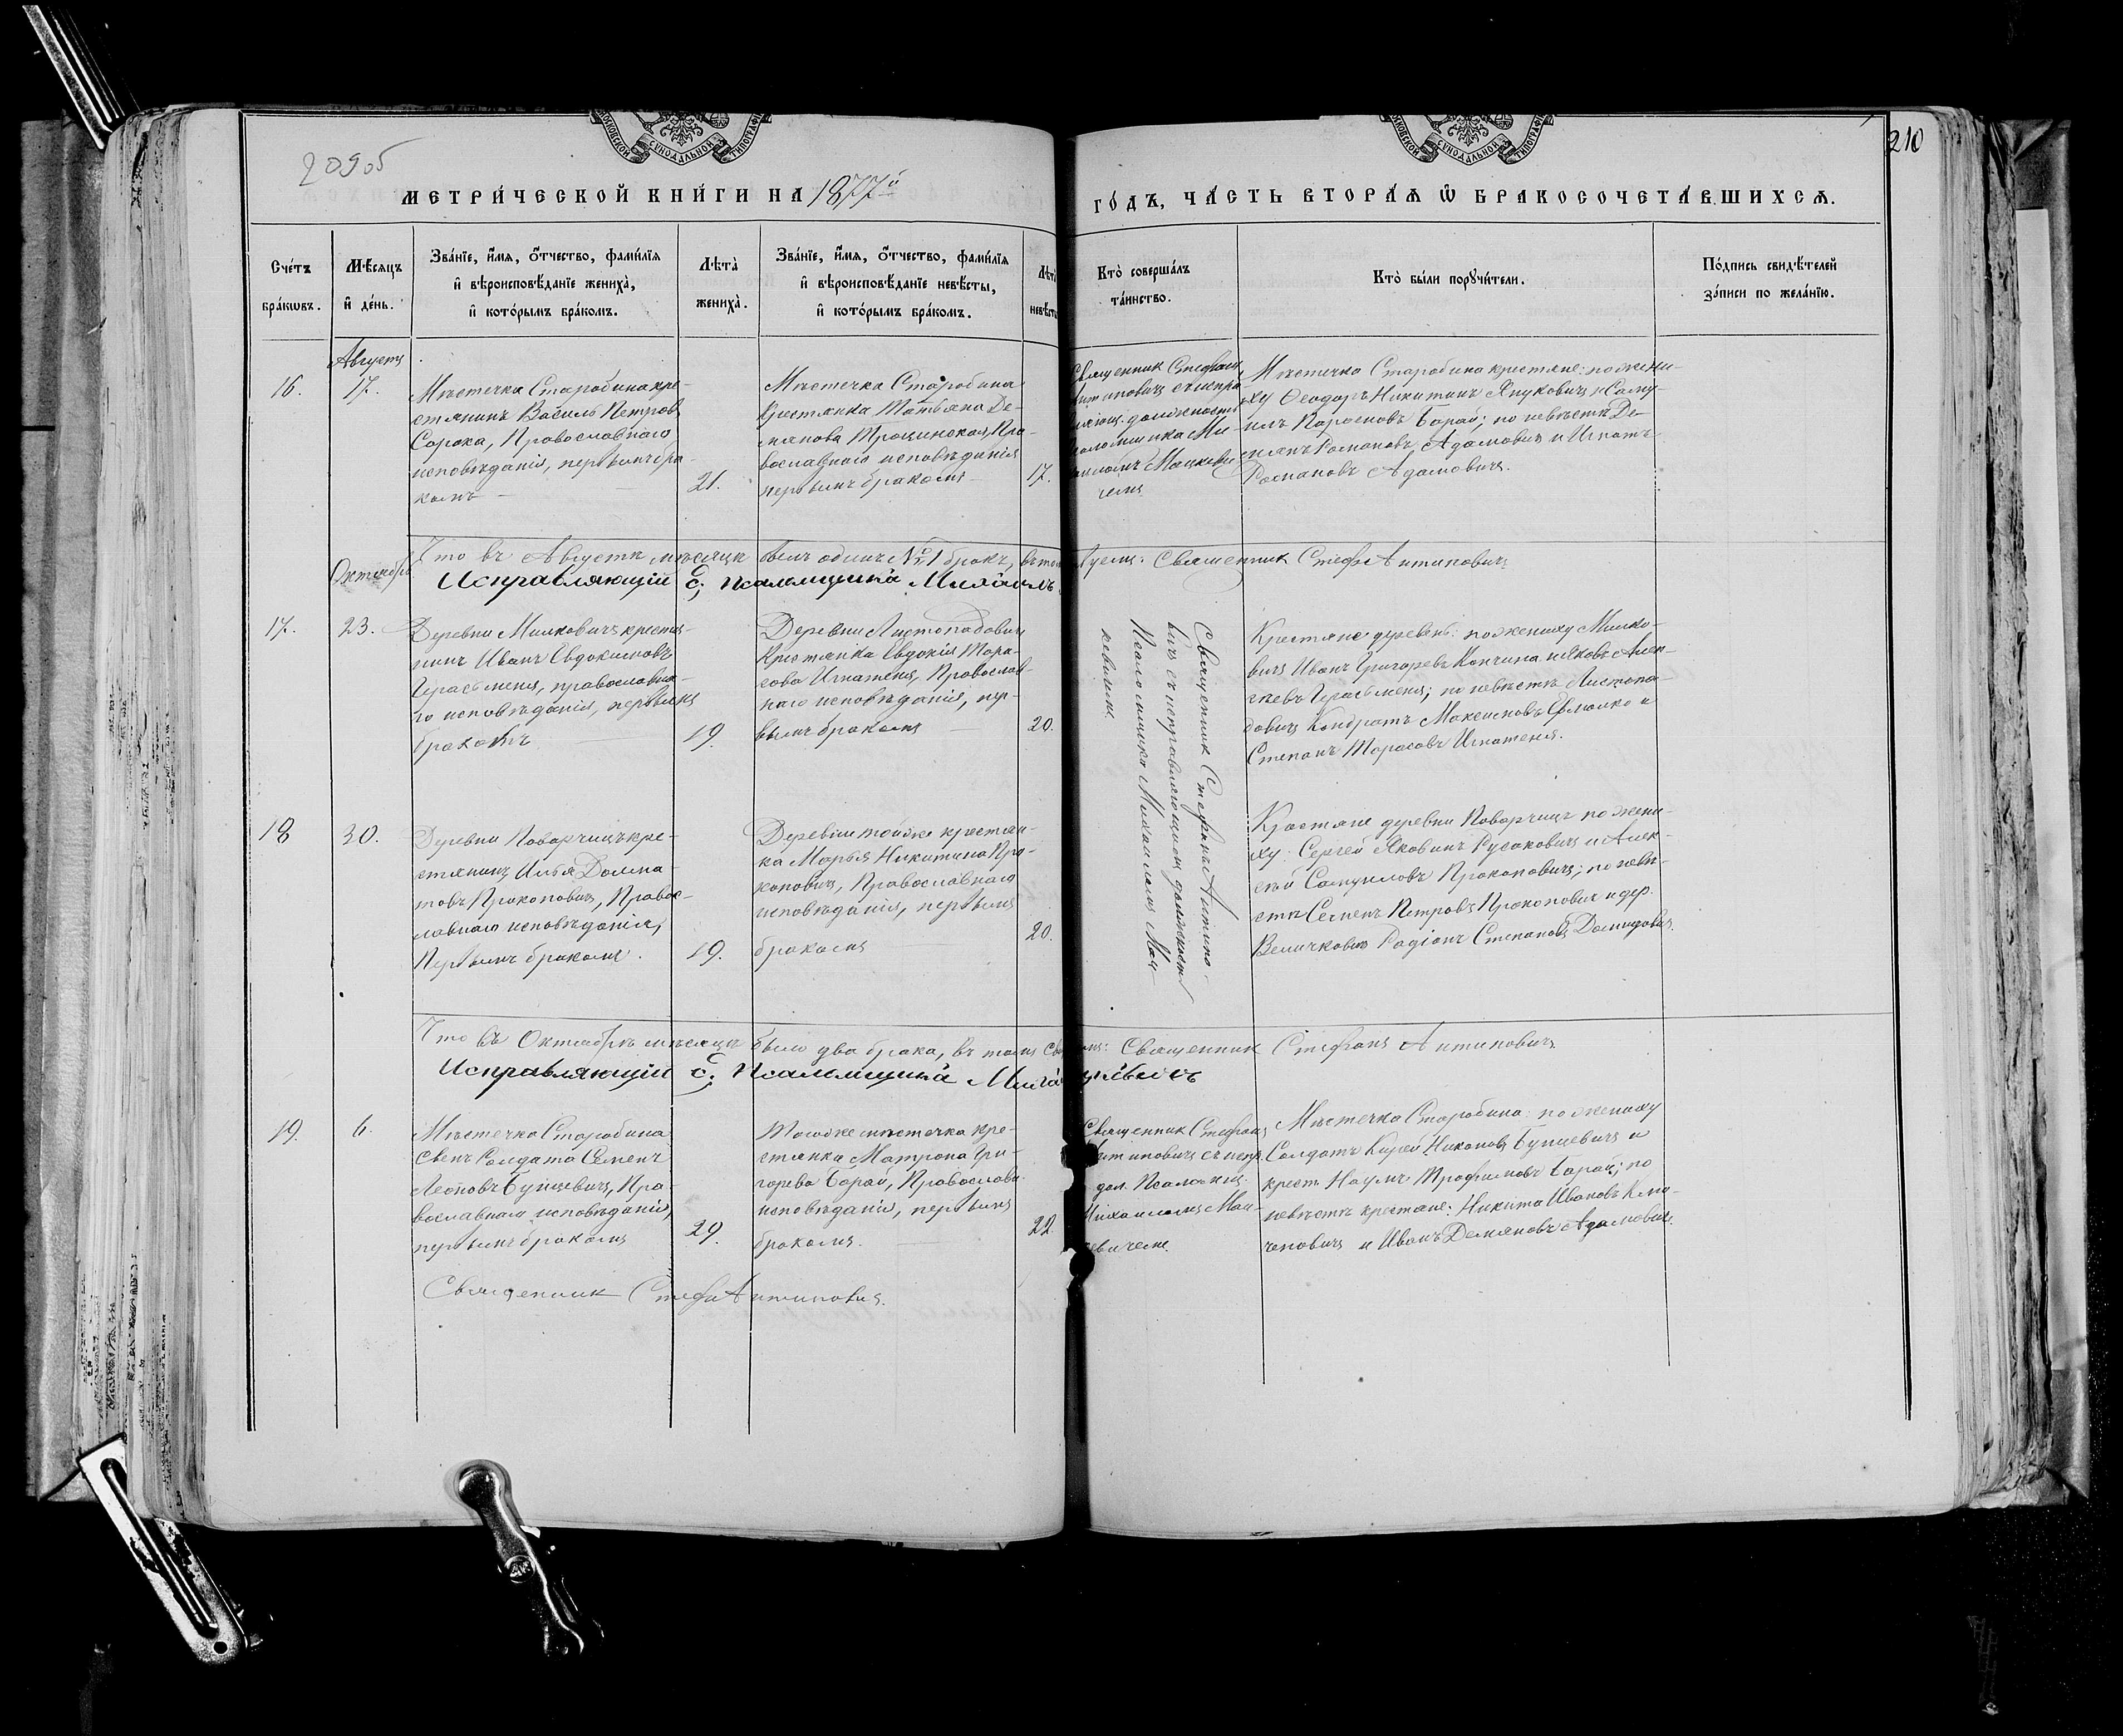 209об
210
МОСКОВСКОЙ СѴНОДАЛЬНОЙ ТИПОГРАФІИ
МОСКОВСКОЙ СѴНОДАЛЬНОЙ ТИПОГРАФІИ
МЕТРИ́ЧЕСКОЙ КНИ́ГИ НА 1877й
ГО́ДЪ, ЧА́СТЬ ВТОРА́Ѧ Ѽ БРАКОСОЧЕТА́ВШИХСѦ.
Сче́тъ
бра́кωвъ.
Мѣ́сяцъ
и҆ де́нь.
Зва́нїе, и҆́мя, о҆́тчество, фами́лїя
и҆ вѣроисповѣ́данїе жениха̀,
и҆ кото́рымъ бра́комъ.
Лѣта̀
жениха̀.
Зва́нїе, и҆́мя, о҆́тчество, фами́лїя
и҆ вѣроисповѣ́данїе невѣ́сты,
и҆ кото́рымъ бра́комъ.
Лѣта̀
невѣ́сты
Кто̀ соверша́лъ
та́инство.
Кто̀ бы́ли порꙋчи́тели.
По́дпись свидѣ́телей
за́писи по жела́нїю.
Августъ
16.
17.
Мѣстечка Старобина кре-
стьянинъ Василь Петровъ
Сорока, Православнаго
исповѣданія, первымъ бра-
комъ
21.
Мѣстечка Старобина
крестьянка Татьяна Де-
мьянова Трощинская, Пра-
вославнаго исповѣданія
первымъ бракомъ
17.
Священник Стефанъ
Антиповичъ съ испра-
вляющ. должность
псаломщика Ми-
хаиломъ Мацкеви-
чемъ
Мѣстечка Старобина крестьяне: по жени-
ху Ѳеодоръ Никитинъ Януковичъ и Саму-
илъ Карповъ Барай; по невѣстѣ Де-
мьянъ Романовъ Адамовичъ и Игнатъ
Романовъ Адамовичъ.
Что въ Августѣ мѣсяцѣ былъ одинъ №1 бракъ, въ томъ
Священник Стефанъ Антиповичъ
Исправляющій д. псаломщика Михаилъ
Октябрь
17.
23.
Деревни Милковичъ крестья-
нинъ Иванъ Евдокимовъ
Герасименя, православна-
го исповѣданія, первымъ
бракомъ
19.
Деревни Листопадовичъ
Крестьянка Евдокія Тара-
сова Игнатеня, Православ-
наго исповѣданія, пер-
вымъ бракомъ
20.
Священник Стефанъ Антипо-
вичъ съ исправляющимъ должность
Псаломщика Михаиломъ Мац-
кевичемъ
Крестьяне деревень: по жениху Милко-
вичъ Иванъ Григорьевъ Кончина и Яковъ Алек-
сѣевъ Герасименя; по невѣстѣ Листопа-
довичъ Кондратъ Максимовъ Ярмолко и
Степанъ Тарасовъ Игнатеня.
18
30.
Деревни Поварчицъ кре-
стьянинъ Илья Долма-
товъ Прокоповичъ, Правос-
лавнаго исповѣданія,
Первымъ бракомъ.
19.
Деревни той же крестьян-
ка Марья Никитина Про-
коповичъ, Православнаго
исповѣданія, первымъ
бракомъ
20.
Крестьяне деревни Поварчицъ по жени-
ху: Сергѣй Яковинъ Русаковичъ и Алек-
сѣй Самуиловъ Прокоповичъ; по невѣ-
стѣ Семенъ Петровъ Прокопович и дер.
Величковичъ Радіонъ Степановъ Демидовичъ.
Что въ Октябрѣ мѣсяцѣ было два брака, въ томъ
Священник Стефанъ Антиповичъ
Исправляющій д. Псаломщика
19.
6.
Мѣстечка Старобина
сынъ солдата Семенъ
Леоновъ Бунцевичъ, Пра-
вославнаго исповѣданія,
первымъ бракомъ
29.
Того же мѣстечка кре-
стьянка Матрона Гри-
горева Барай, Православн.
исповѣданія, первымъ
бракомъ.
22.
Священник Стефанъ
Антиповичъ съ испр.
дол. Псаломщ.
Михаиломъ Мац-
кевичемъ.
Мѣстечка Старобина: по жениху
Солдатъ Кирей Никоновъ Бунцевичъ и
крест. Наумъ Трофимовъ Барай; по
невѣстѣ крестьяне: Никита Ивановъ Кли-
ченовичъ и Иванъ Демьяновъ Адамовичъ.
Священник Стефанъ Антиповичъ.